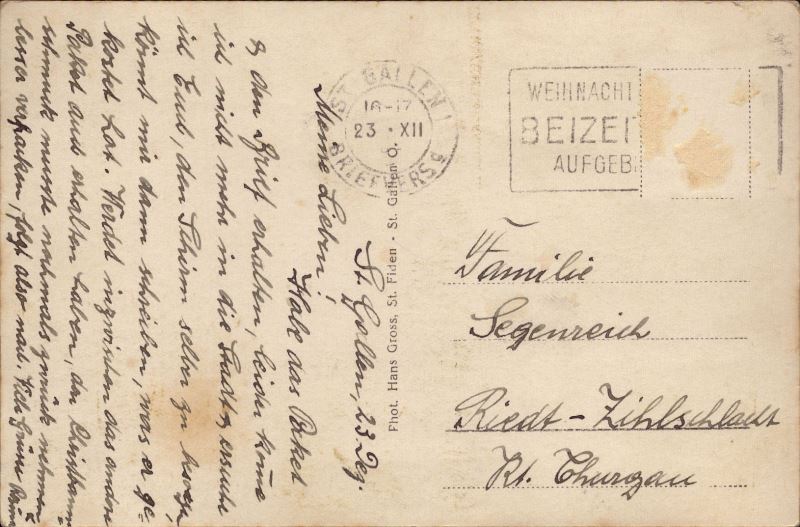 St. Gallen, 23 Dez.
Meine Lieben!
Habe das Paket
& den Brief erhalten, leider komme
ich nicht mehr in die Stadt, ersuche
ich Euch, den Schirm selber zu
könnt mir dann schreiben, was er ge-
kostet hat. Werdet inzwischen das andre
Paket auch erhalten haben, der Christbaum-
schmuck musste nochmals zurück nehmen &
besser verpacken, folgt also nach. Viele Grüsse
Phot. Hans Gross, St. Fiden - St. Gallen O.
ST. GALLEN 1
16-17
23 · XII
BRIEFVERS
WEIHNACHT
BEIZEI
AUFGEB
Familie
Segenreich
Riedt-Zihlschlacht
Kt. Thurgau